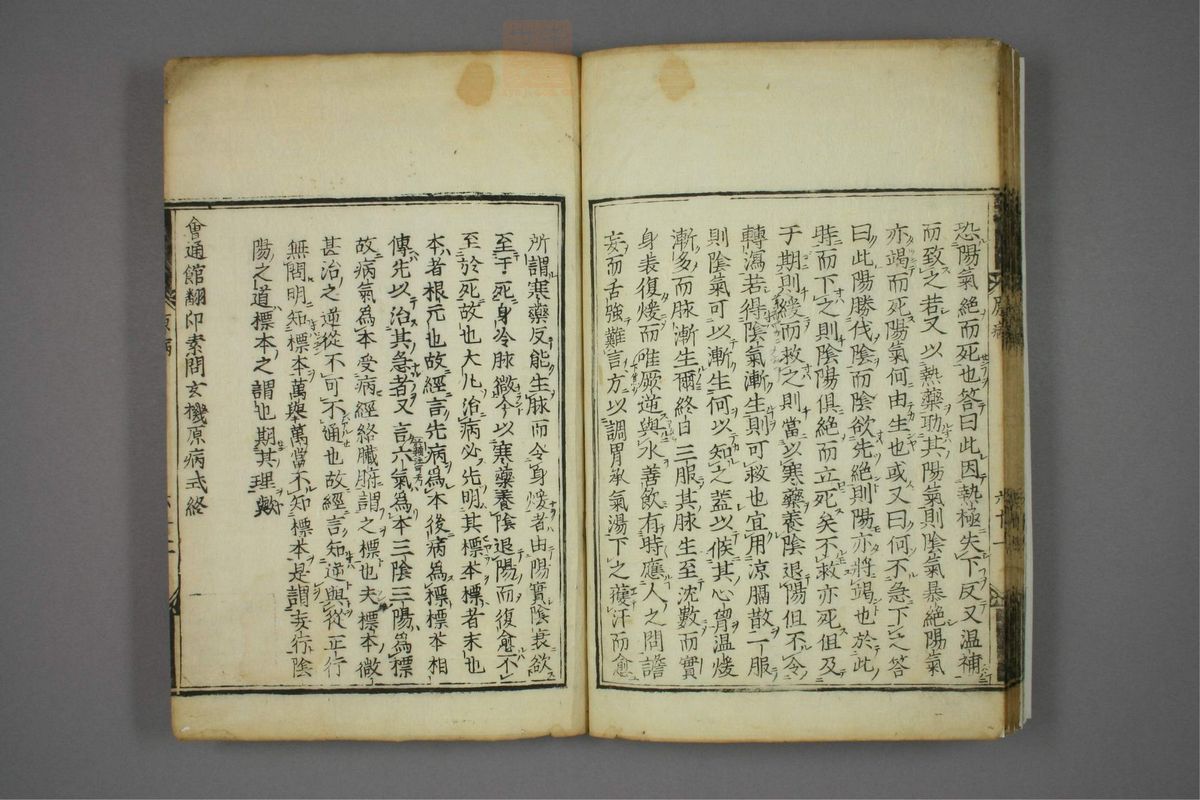 恐陽氣絶而死也答曰此因熱極失下反又温補
而致之若又以熱藥助其陽氣則陰氣暴絶陽氣
亦竭而死陽氣何由生也或又曰何不急下之答
曰此陽勝伐陰而陰欲先絶則陽亦將竭也於此
時而下之則陰陽俱絶而立死矣不救亦死但及
于期則緩而救之則當以寒藥養陰退陽但不令
轉瀉若得陰氣漸生則可救也宜用凉膈散一服
則陰氣可以漸生何以知之蓋以候其心胷温煖
漸多而脉漸生爾終日三服其脉生至沈數而實
身表復煖而唯厥逆與水善飲有時應人之問譫
妄而舌強難言方以調胃承氣湯下之獲汗而愈
所謂寒藥反能生脉而令身煖者由陽實陰衰欲
至于死身冷脉微今以寒藥養陰退陽而復愈不
至於死故也大凡治病必先明其標本標者末也
本者根元也故經言先病為本後病為標標本相
傳先以治其急者又言六氣為本三陰三陽為標
故病氣為本受病經絡臟腑謂之標也夫標本微
甚治之逆從不可不通也故經言知逆與從正行
無問明知標本萬舉萬當不知標本是謂妄行陰
陽之道標本之謂也期其理歟
會通館翻印素問玄機原病式終
原病
六十一